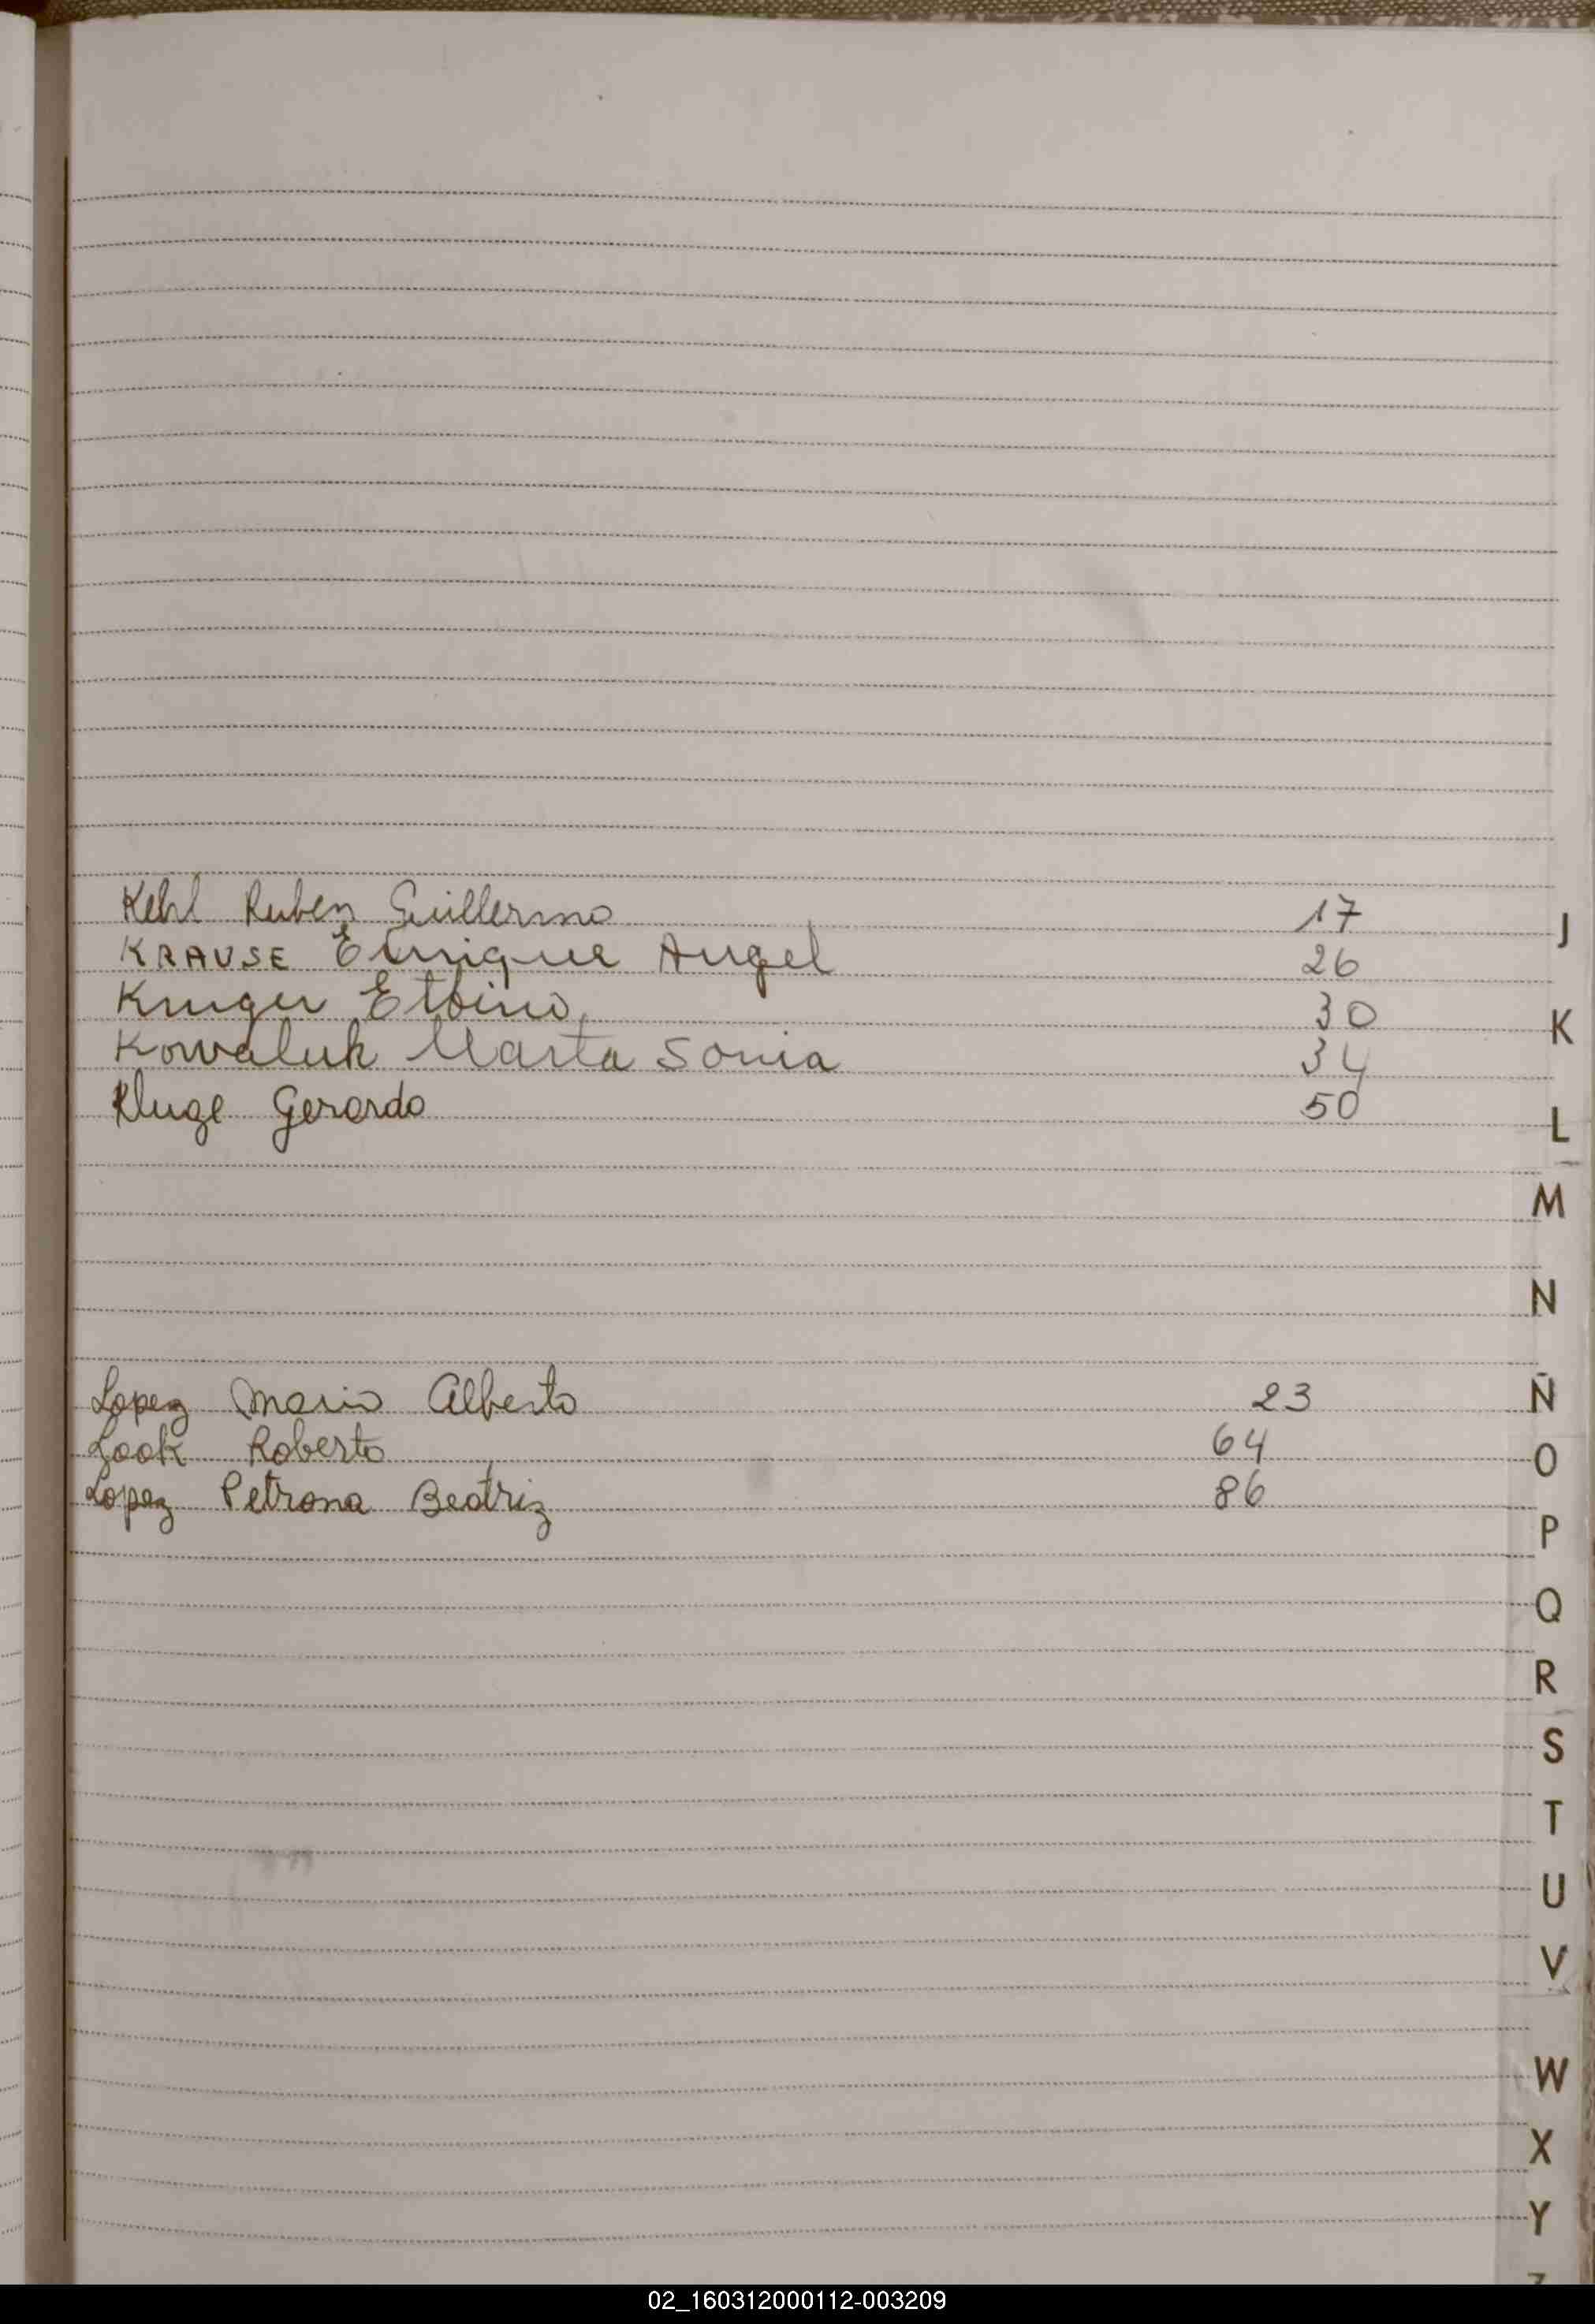 Kehl Ruben Guillermo 17
KRAUSE Enrique Angel 26
Kruger Etbino 30
Kowaluk Marta Sonia 34
Kluge Gerardo 50
Lopez Mario Alberto 23
Look Roberto 64
Lopez Petrona Beatriz 86
J
K
L
M
N
Ñ
O
P
Q
R
S
T
U
V
W
X
Y
Z
02_160312000112-003209